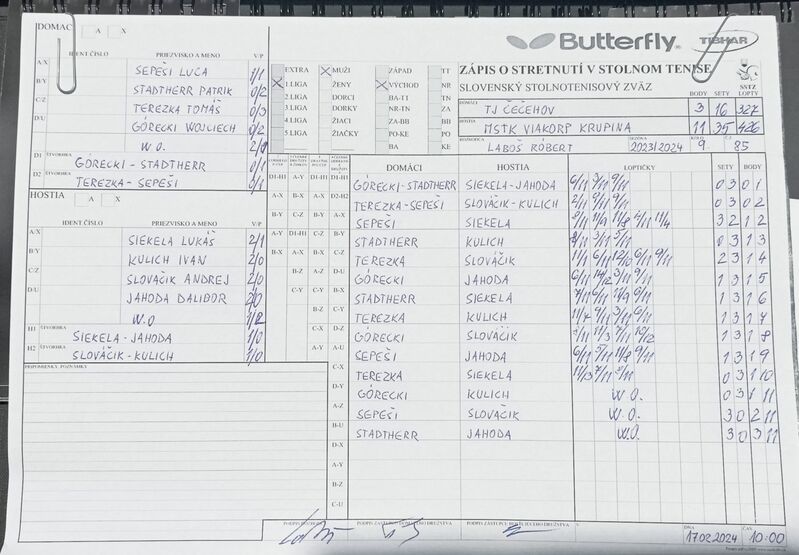 DOMÁCI A X
Butterfly TIBHAR
IDENT ČÍSLO PRIEZVISKO A MENO V/P
A/X SEPEŠI LUCA 1/1
B/Y STADTHERR PATRIK 0/2
C/Z TEREZKA TOMÁŠ 0/3
D/U GÓRECKI WOJCIECH 0/2
W.O.
D1 ŠTVORHRA GÓRECKI - STADTHERR 0/1
D2 ŠTVORHRA TEREZKA - SEPEŠI 0/1
HOSTIA A X
IDENT ČÍSLO PRIEZVISKO A MENO V/P
A/X SIEKELA LUKÁŠ 2/1
B/Y KULICH IVAN 2/0
C/Z SLOVÁČIK ANDREJ 2/0
D/U JAHODA DALIBOR 2/0
W.O. 1/2
H1 ŠTVORHRA SIEKELA - JAHODA 1/0
H2 ŠTVORHRA SLOVÁČIK - KULICH 1/0
PRIPOMIENKY, POZNÁMKY
EXTRA MUŽI ZÁPAD TT
1 LIGA ŽENY VÝCHOD NR
2 LIGA DORCI BA-TT TN
3 LIGA DORKY NR-TN ZA
4 LIGA ŽIACI ZA-BB BB
5 LIGA ŽIAČKY PO-KE PO
BA KE
ZÁPIS O STRETNUTÍ V STOLNOM TENISE
SLOVENSKÝ STOLNOTENISOVÝ ZVÄZ SSTZ
BODY SETY LOPTY
DOMÁCI TJ ČEČEHOV 3 16 327
HOSTIA MSTK VIAKORP KRUPINA 11 35 426
ROZHODCA LABOŠ RÓBERT SEZÓNA 2023/2024 KOLO 9 85
DOMÁCI HOSTIA LOPTIČKY SETY BODY
D1-H1 A-Y D1-H1 A-X GÓRECKI - STADTHERR SIEKELA - JAHODA 6/11 3/11 9/11 0 3 0 1
A-X B-X A-X D2-H2 TEREZKA - SEPEŠI SLOVÁČIK - KULICH 2/11 9/11 9/11 0 3 0 2
SEPEŠI SIEKELA 11/9 11/8 11/4 3 2 1 2
STADTHERR KULICH 3/11 5/11 0 3 1 3
TEREZKA SLOVÁČIK 11/1 6/11 12/10 6/11 9/11 2 3 1 4
GÓRECKI JAHODA 6/11 14/12 3/11 9/11 1 3 1 5
STADTHERR SIEKELA 7/11 6/11 11/9 6/11 1 3 1 6
TEREZKA KULICH 9/11 3/11 6/11 1 3 1 7
GÓRECKI SLOVÁČIK 11/3 7/11 10/12 1 3 1 8
SEPEŠI JAHODA 6/11 5/11 11/8 9/11 1 3 1 9
TEREZKA SIEKELA 11/13 7/11 0 3 1 10
GÓRECKI KULICH W.O. 0 3 1 11
SEPEŠI SLOVÁČIK W.O. 3 0 2 11
STADTHERR JAHODA W.O. 3 0 3 11
C-X
D-Y
A-Z
B-U
D-X
A-Y
B-Z
C-U
PODPIS ROZHODCU PODPIS ZÁSTUPCU DOMÁCEHO DRUŽSTVA PODPIS ZÁSTUPCU HOSŤUJÚCEHO DRUŽSTVA V DŇA 17.02.2024 ČAS 10:00